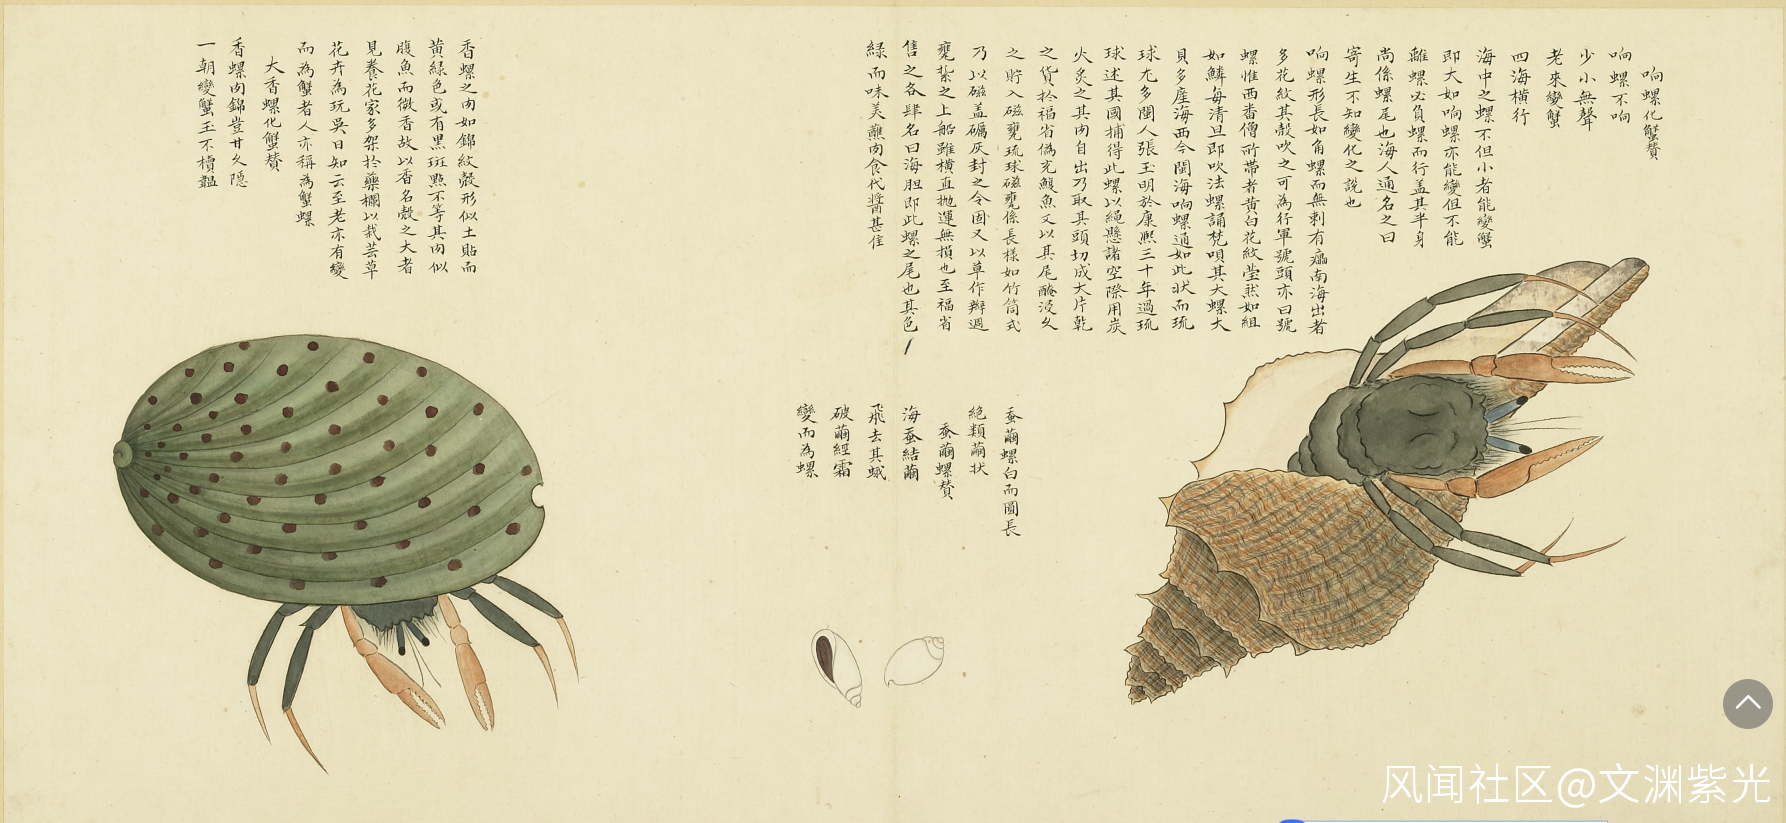 响螺化蟹賛
响螺不响
少小無聲
老來變蟹
四海橫行
海中之螺不但小者能變蟹
即大如响螺亦能變但不能
離螺必負螺而行盖其半身
尚係螺尾也海人通名之曰
寄生不知變化之說也
响螺形長如角螺而無刺有瘟南海出者
多花紋其殼吹之可為行軍號頭亦曰號
螺惟西畨僧所帶者黄白花紋瑩然如組
如鱗每清旦即吹法螺誦梵唄其大螺大
貝多産海西今閩海响螺通如此狀而琉
球尤多閩人張玉明於康熙三十年過琉
球述其國捕得此螺以繩懸諸空際用炭
火炙之其肉自出乃取其頭切成大片乾
之貨扵福省偽充鰒魚又以其尾醃浸久
之貯入磁甕琉球磁甕係長様如竹筒式
乃以磁盖礪灰封之令固又以草作辮週
甕紮之上船雖横直抛運無損也至福省
售之各肆名曰海胆即此螺之尾也其色
緑而味美蘸肉食代醬甚佳
蚕繭螺白而圓長
絶類繭状
蚕繭螺賛
海蚕結繭
飛去其蛾
破繭經霜
變而為螺
香螺之肉如錦紋殼形似土貼而
黄緑色或有黑斑㸃不等其肉似
腹魚而微香故以香名殼之大者
見養花家多架扵藥欄以栽芸草
花卉為玩吳日知云至老亦有變
而為蟹者人亦稱為蟹螺
大香螺化蟹賛
香螺肉錦豈甘久隱
一朝變蟹玉不櫝韞
风闻社区@文渊紫光